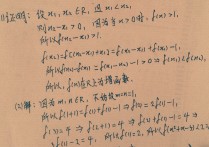 (1)证明:设x₁,x₂∈R,且x₁<x₂,
则x₂-x₁>0,因为当x>0时,f(x)>1,
所以f(x₂-x₁)>1.
f(x₂)=f[(x₂-x₁)+x₁]=f(x₂-x₁)+f(x₁)-1,
所以f(x₂)-f(x₁)=f(x₂-x₁)-1>0⇒f(x₁)<f(x₂),
所以,f(x)在R上为增函数.
(2)解:因为m,n∈R,不妨设m=n=1,
所以f(1+1)=f(1)+f(1)-1⇒f(2)=2f(1)-1,
f(3)=4⇒f(2+1)=4⇒f(2)+f(1)-1=4⇒
f(1)-2=4,所以f(1)=2,所以f(